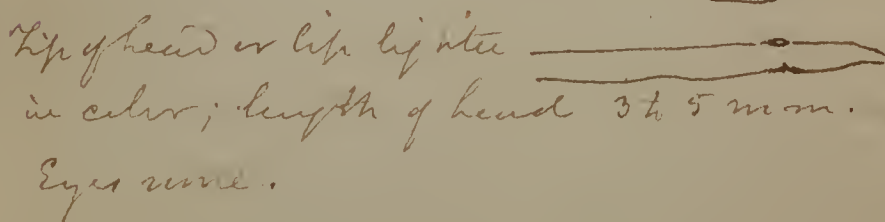 Tip of head or lip lighter
in color; length of head 3 to 5 mm.
Eyes none.